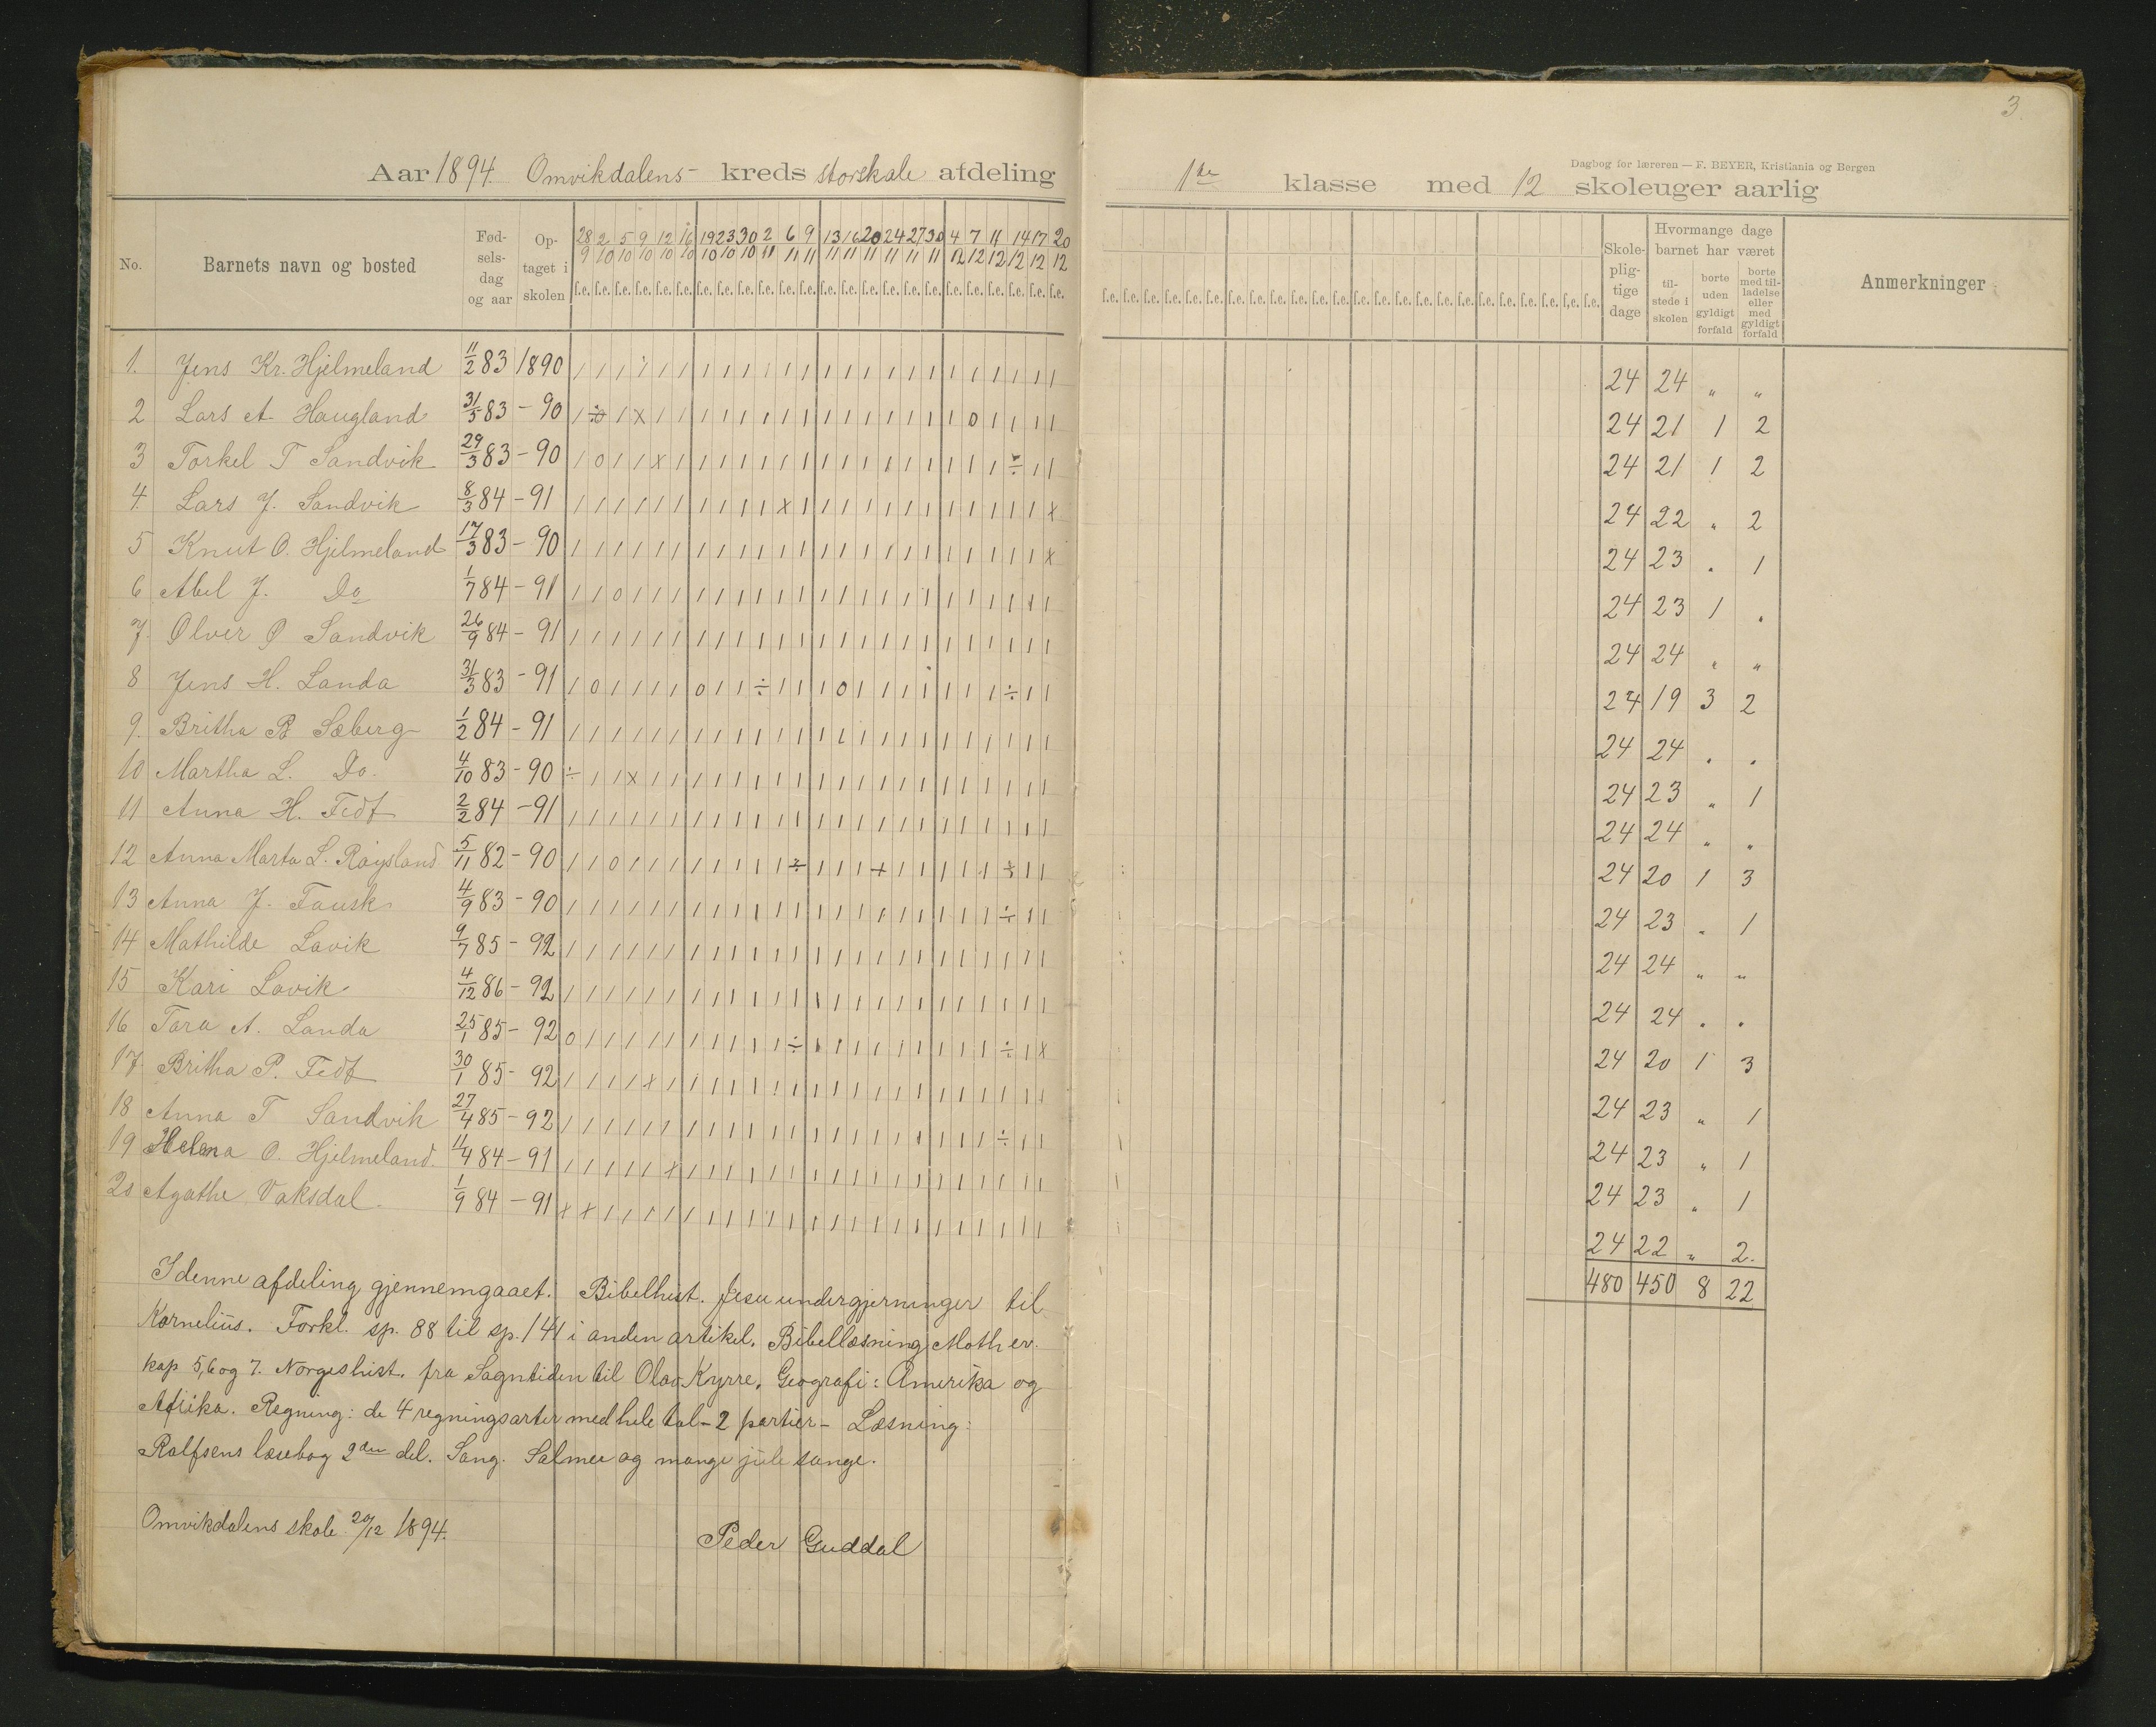 3
Dagbog for læreren — F. BEYER, Kristiania og Bergen
Aar 1894. Omvikdalens- kreds storskole afdeling 1ste klasse med 12 skoleuger aarlig
No. Barnets navn og bosted Fødselsdag og aar Optaget i skolen Skolepligtige dage Hvormange dage barnet har været tilstede i skolen borte uden gyldigt forfald borte med tilladelse eller med gyldigt forfald Anmerkninger
28/9 2/10 5/10 9/10 12/10 16/10 19/10 23/10 30/10 2/11 6/11 9/11 13/11 16/11 20/11 24/11 27/11 30/11 4/12 7/12 11/12 14/12 17/12 20/12
1. Jens Kr. Hjelmeland 11/2 83 1890 24 24 „ „
2 Lars A Haugland 31/5 83 - 90 24 21 1 2
3 Torkel T Sandvik 29/3 83 - 90 24 21 1 2
4. Lars J. Sandvik 8/3 84 - 91 24 22 „ 2
5 Knut O. Hjelmeland 17/3 83 - 90 24 23 „ 1
6 Abel J. Do 1/7 84 - 91 24 23 1 „
7. Olver O Sandvik 26/9 84 - 91 24 24 „ „
8 Jens H. Landa 31/3 83 - 91 24 19 3 2
9. Britha B Sæberg 1/2 84 - 91 24 24 „ „
10 Martha L. Do. 4/10 83 - 90 24 23 „ 1
11 Anna H. Fedt 2/2 84 - 91 24 24 „ „
12 Anna Marta L. Røysland 5/11 82 - 90 24 20 1 3
13 Anna J. Fausk 4/9 83 - 90 24 23 „ 1
14 Mathilde Lavik 9/7 85 - 92 24 24 „ „
15 Kari Lavik 4/12 86 - 92 24 24 „ „
16 Tora A. Landa 25/1 85 - 92 24 20 1 3
17. Britha P. Fedt 30/1 85 - 92 24 23 „ 1
18 Anna T Sandvik 27/4 85 - 92 24 23 „ 1
19 Helena O. Hjelmeland. 11/4 84 - 91 24 23 „ 1
20 Agathe Vaksdal. 1/9 84 - 91 24 22 „ 2.
480 450 8 22
I denne afdeling gjennemgaaet. Bibelhist. Jesu undergjerninger til
Kornelius. Forkl. sp. 88 til sp. 141 i anden artikel. Bibellæsning Math ev.
kap 5,6 og 7. Norgeshist. fra Sagntiden til Olav Kyrre. Geografi: Amerika og
Afrika. Regning: de 4 regningsarter med hele tal - 2 partier - Læsning:
Rolfsens læsebog 2den del. Sang. Salmer og mange jule sange.
Omvikdalens skole 20/12 1894.
Peder Guddal